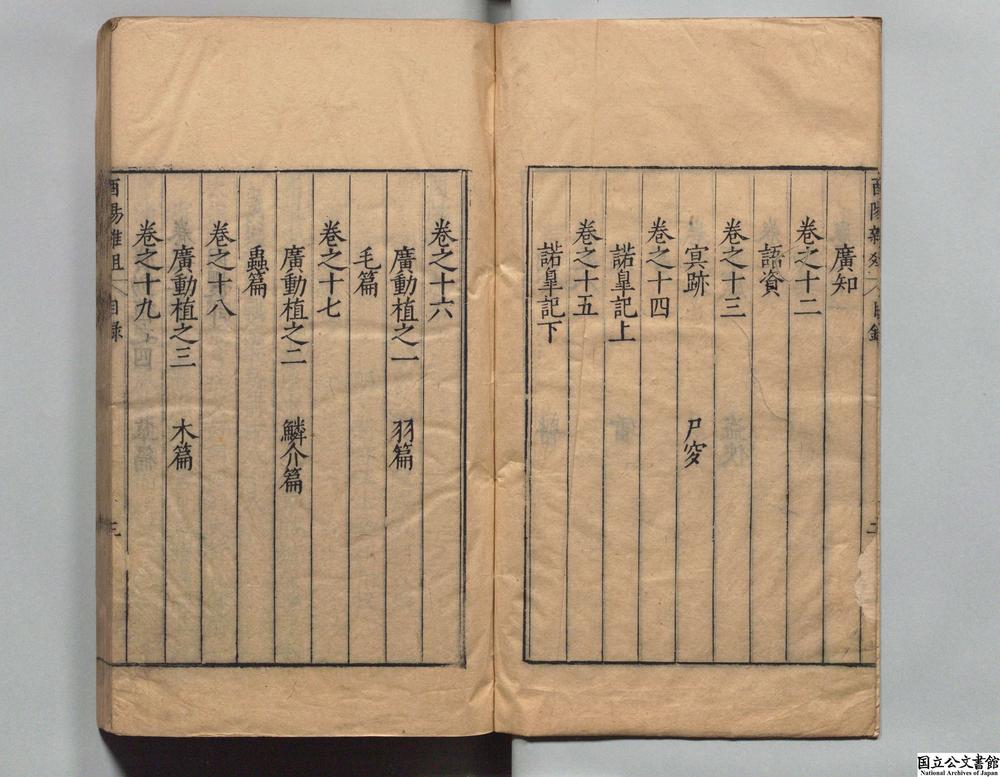 廣知
卷之十二
語資
卷之十三
㝠跡 尸穸
卷之十四
諾皐記上
卷之十五
諾皐記下
二
卷之十六
廣動植之一 羽篇
毛篇
卷之十七
廣動植之二 鱗介篇
蟲篇
卷之十八
廣動植之三 木篇
卷之十九
酉陽雜俎 目錄 三
国立公文書館
National Archives of Japan